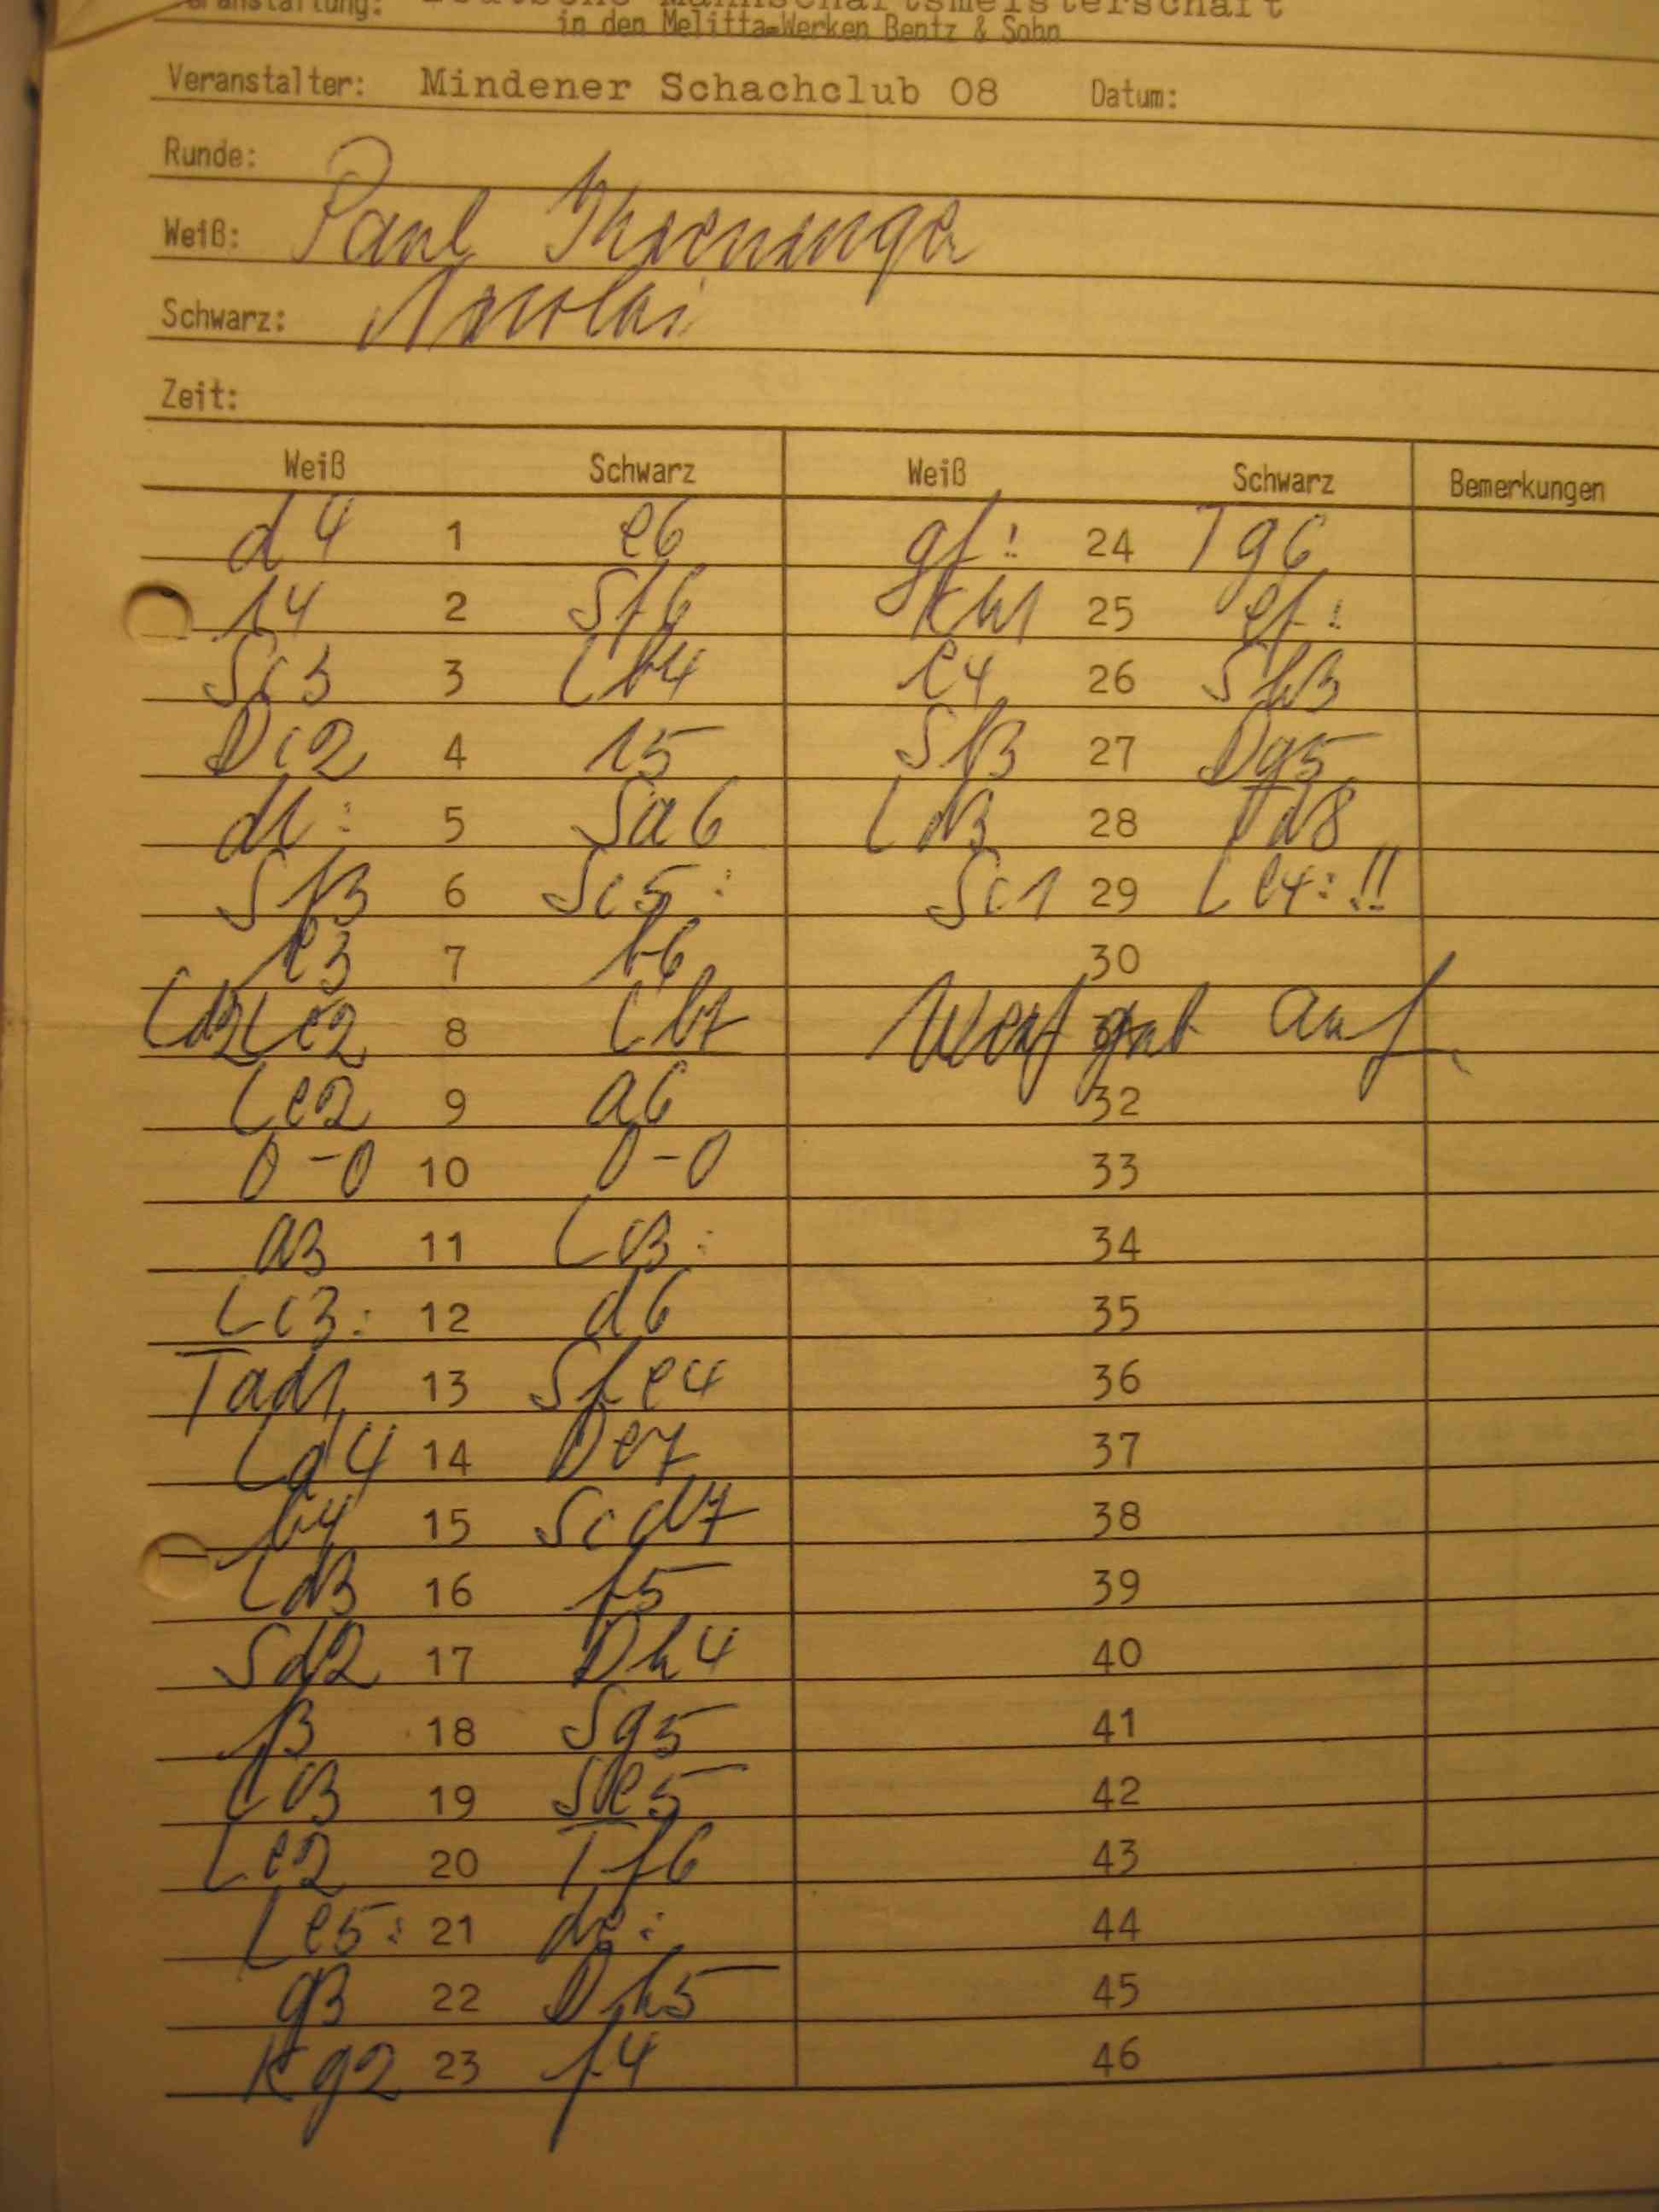 Veranstaltung: Deutsche Mannschaftsmeisterschaft
in den Melitta-Werken Bentz & Sohn
Veranstalter: Mindener Schachclub 08 Datum:
Runde:
Weiß: Paul
Schwarz:
Zeit:
Weiß Schwarz Weiß Schwarz Bemerkungen
d4 1 e6 gf: 24 Tg6
c4 2 Sf6 Kh1 25 ef:
Sc3 3 Lb4 e4 26 Sh3
Dc2 4 c5 Sf3 27 Dg5
dc: 5 Sa6 Ld3 28 Td8
Sf3 6 Sc5: Sc1 29 Le4:!!
e3 7 b6 30
Ld2 Le2 8 Lb7 Weiß gab auf
Le2 9 a6 32
0-0 10 0-0 33
a3 11 Lc3: 34
Lc3: 12 d6 35
Tad1 13 Sfe4 36
Ld4 14 De7 37
b4 15 Scd7 38
Ld3 16 f5 39
Sd2 17 Dh4 40
f3 18 Sg5 41
Lc3 19 Se5 42
Le2 20 Tf6 43
Le5: 21 de: 44
g3 22 Dh5 45
Kg2 23 f4 46